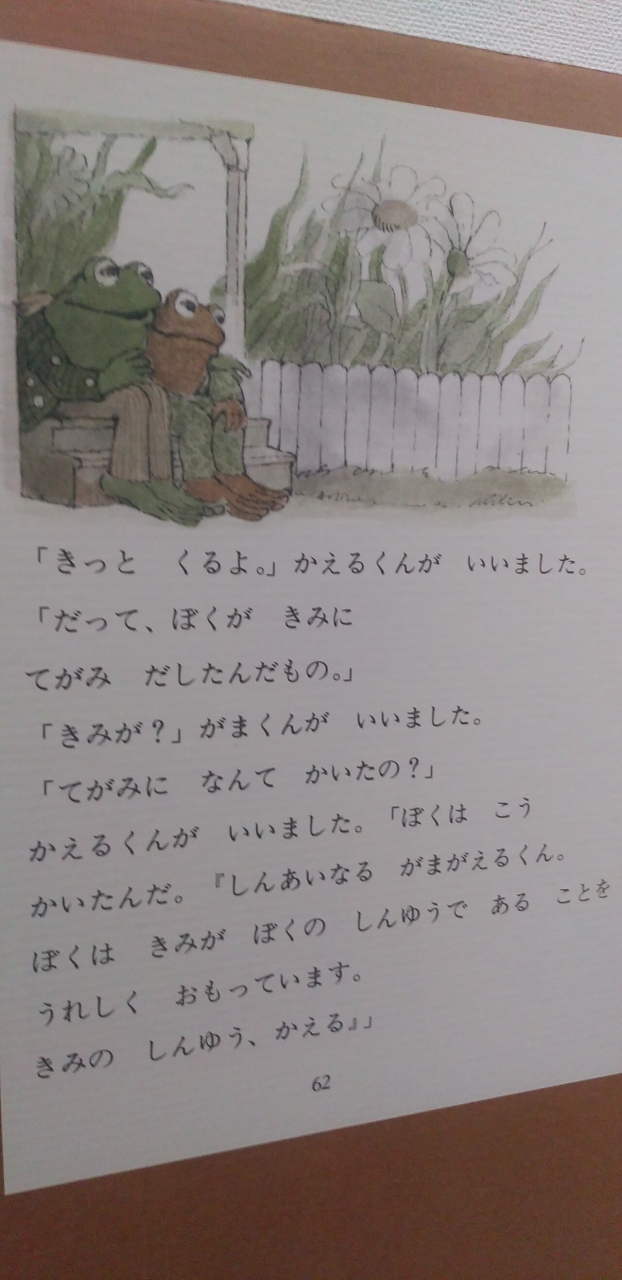 「きっと　くるよ。」かえるくんが　いいました。
「だって、ぼくが　きみに
てがみ　だしたんだもの。」
「きみが？」がまくんが　いいました。
「てがみに　なんて　かいたの？」
かえるくんが　いいました。「ぼくは　こう
かいたんだ。『しんあいなる　がまがえるくん。
ぼくは　きみが　ぼくの　しんゆうで　ある　ことを
うれしく　おもっています。
きみの　しんゆう、かえる』」
62